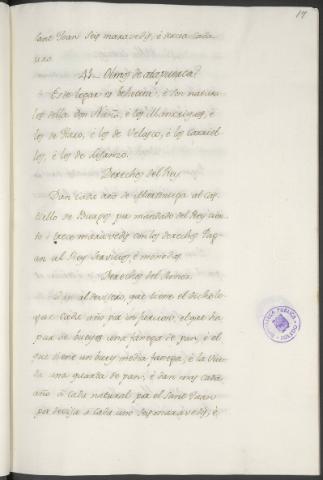 17
sant Juan seis maravedis, é dacia cada
uno.
41 – Olmos de atapuerca
Este logar es behetria, é son natura
les della don Nuño, é los Manrriques, é
los de Haro, é los de Velasco, é los Carriel
los, é los de
Derechos del Rey
Dan cada año de Martiniega al cas
tillo de Burgos por mandado del Rey cien
to é trece maravedis con los derechos Pag
an al Rey servicios, é monedas
Derechos del Señor
Dan al devisero, que tiene el dicho lo
gar cada año por infurcion, el que ha
par de bueyes una fanega de pan, é el
que tiene un buey media fanega, é la viu
da una quarta de pan, é dan mas cada
año á cada natural por el Sant Juan
por devisa á cada uno seis maravedis, é,